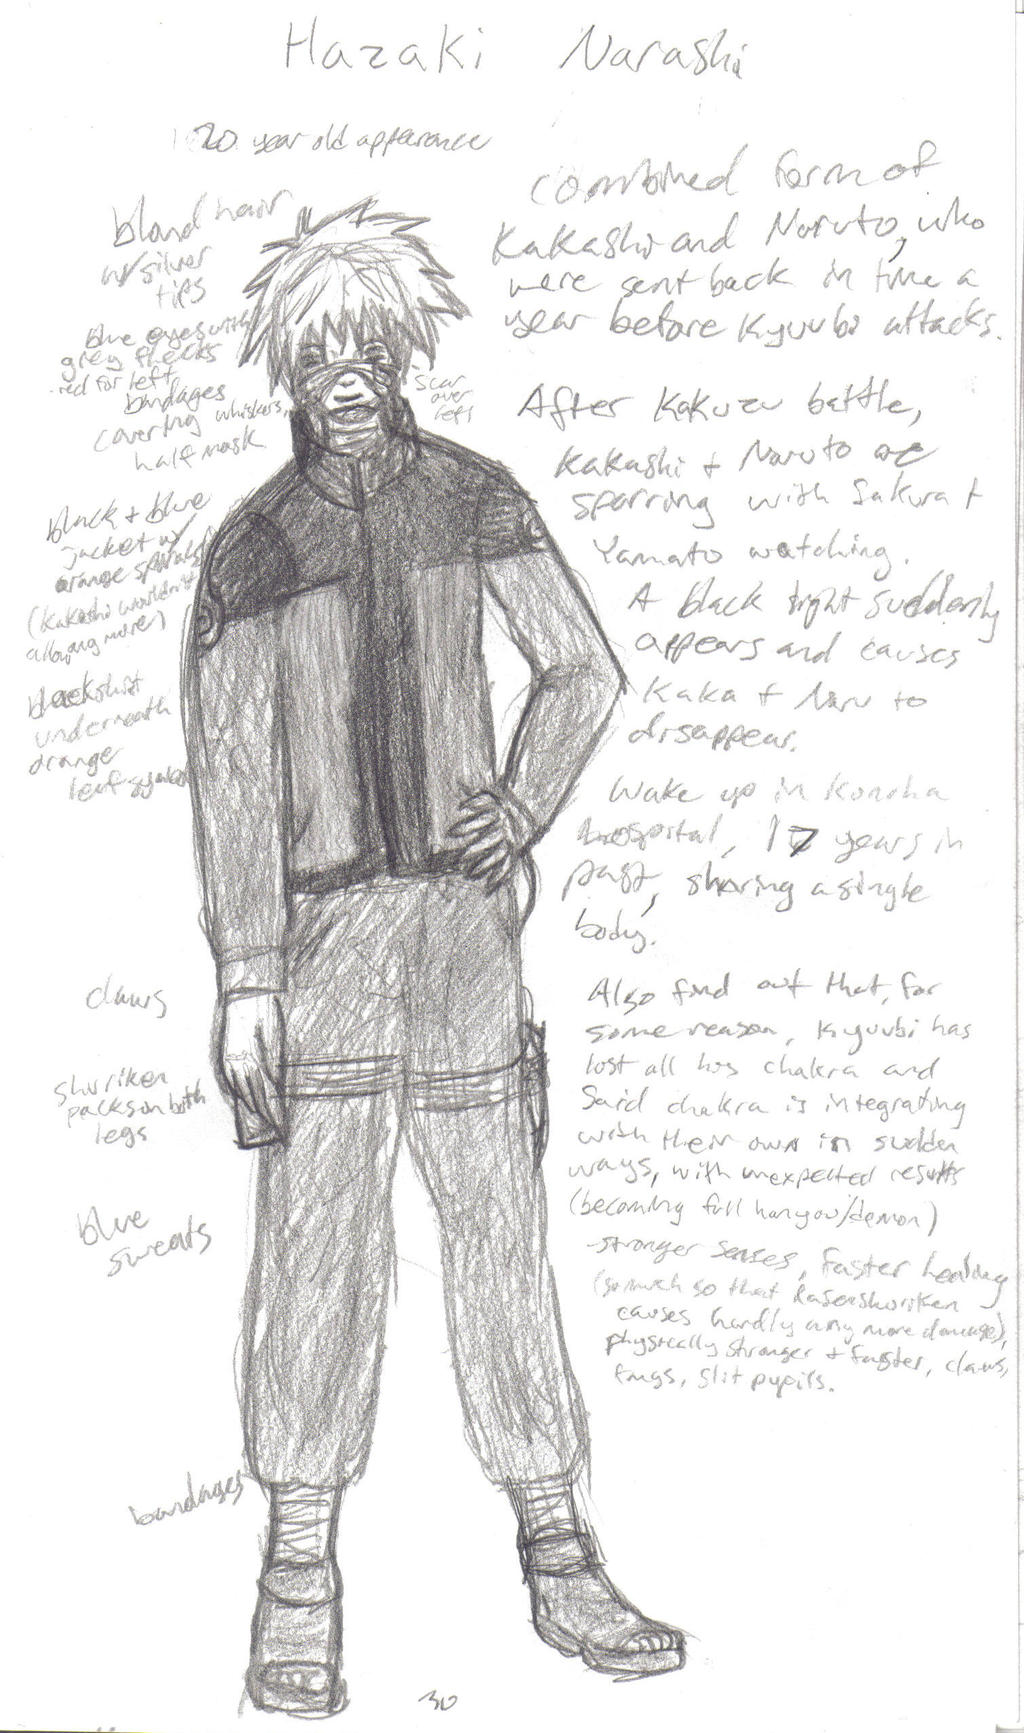 Hazaki Narashi
20 year old appearance
blond hair
w/ silver
tips
blue eyes with
grey flecks
-red for left
bandages
covering whiskers,
half mask
scar
over
left
black + blue
jacket w/
orange spirals
(Kakashi wouldn't
allow any more)
black shirt
underneath
orange
leaf symbol
claws
shuriken
packs on both
legs
blue
sweats
bandages
combined form of
Kakashi and Naruto, who
were sent back in time a
year before Kyuubi attacks.
After Kakuzu battle,
Kakashi + Naruto are
sparring with Sakura +
Yamato watching.
A black light suddenly
appears and causes
Kaka + Naru to
disappear.
Wake up in Konoha
hospital, 17 years in
past, sharing a single
body.
Also find out that, for
some reason, Kyuubi has
lost all his chakra and
said chakra is integrating
with their own in sudden
ways, with unexpected results
(becoming full hanyou/demon)
-stronger senses, faster healing
(so much so that Rasenshuriken
causes hardly any more damage),
physically stronger + faster, claws,
fangs, slit pupils.
30